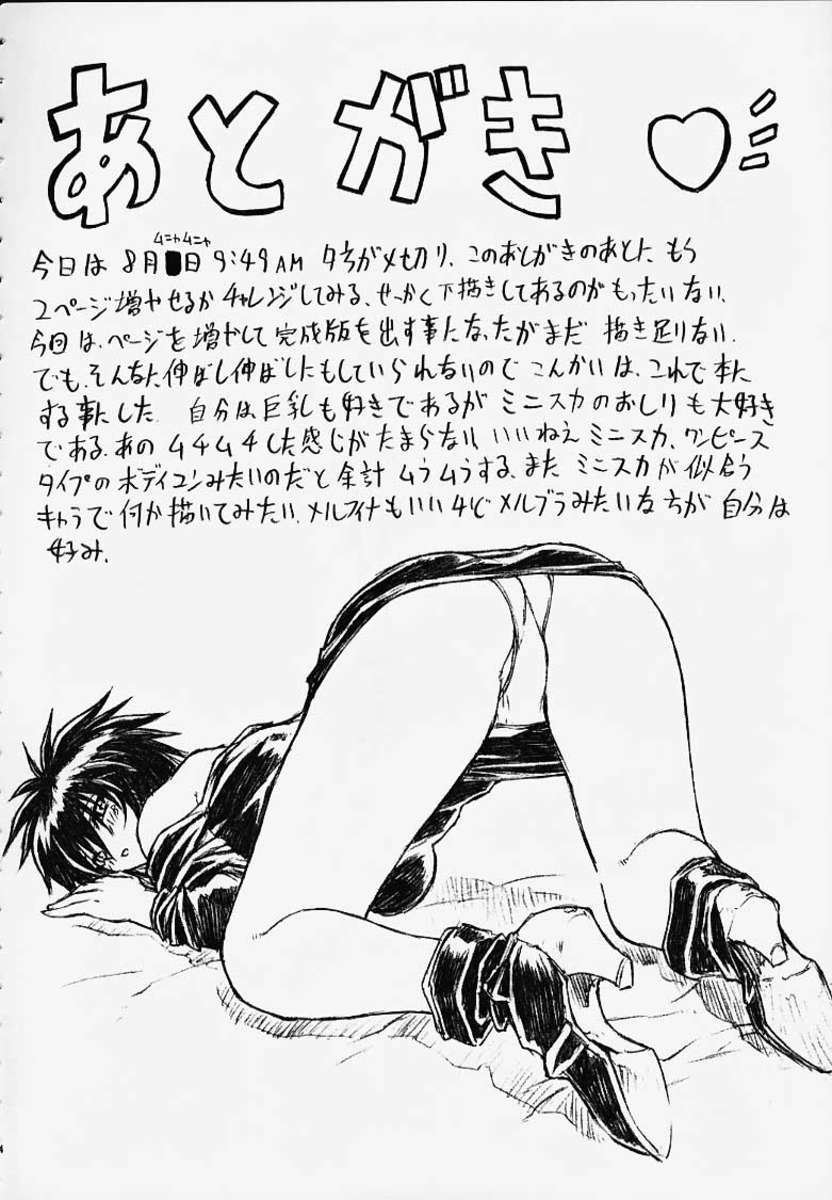 あとがき♡
ムニャムニャ
今日は 8月 日 9:49AM 夕方がメ切り、このあとがきのあとに もう
2ページ増やせるか チャレンジしてみる、せっかく下描きしてあるのがもったいない、
今回は、ページを増やして完成版を出す事になったがまだ 描き足りない、
でも、そんなに伸ばし伸ばしにもしていられないので こんかいは、これで本に
する事にした 自分は巨乳も好きであるが ミニスカのおしりも大好き
である、あの ムチムチした感じがたまらない、いいねえミニスカ、ワンピース
タイプのボディコンみたいのだと余計 ムラムラする、また ミニスカが似合う
キャラで何か描いてみたい、メルフィナもいいけど メルブラみたいな方が 自分は
好み、